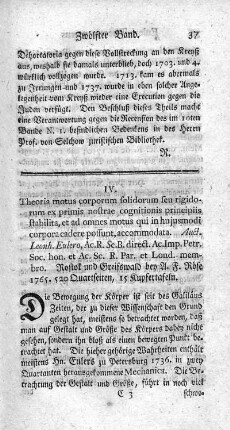 Zwölfter Band. 37
Dehortatoria gegen diese Vollstreckung an den Kreyß
aus, weshalb sie damals unterblieb, doch 1703. und 4.
würklich vollzogen wurde. 1713. kam es abermals
zu Irrungen und 1737. wurde in eben solcher Ange-
legenheit vom Kreiß wieder eine Execution gegen die
Juden verfügt. Den Beschluß dieses Theils mache
eine Verantwortung gegen die Recension des im roten
Bande N. 1. befindlichen Bedenkens in des Herren
Prof. von Selchow juristischen Bibliothek.
R.
IV.
Theoria motus corporum solidorum seu rigido-
rum ex primis nostrae cognitionis principiis
stabilita, et ad omnes motus qui in hujusmodi
corpora cadere possunt, accommodata. Auct.
Leonh. Eulero, Ac. R. Sc. B. direct. Ac. Imp. Petr.
Soc. hon. et Ac. Sc. R. Par. et Lond. mem-
bro. Rostok und Greifswald bey A. F. Röse
1765. 520 Quartseiten, 15 Kupfertafeln.
Die Bewegung der Körper ist seit des Galiläus
Zeiten, der zu dieser Wissenschaft den Grund
gelegt hat, meistens so betrachtet worden, daß
man auf Gestalt und Größe des Körpers dabey nicht
gesehen, sondern ihn bloß als einen bewegten Punkt be-
trachtet hat. Die hieher gehörige Wahrheiten enthält
meistens Hn. Eulers zu Petersburg 1736. in zwey
Quartanten herausgekommene Mechanica. Die Be-
trachtung der Gestalt und Größe, führt in noch
C 3 schwe-